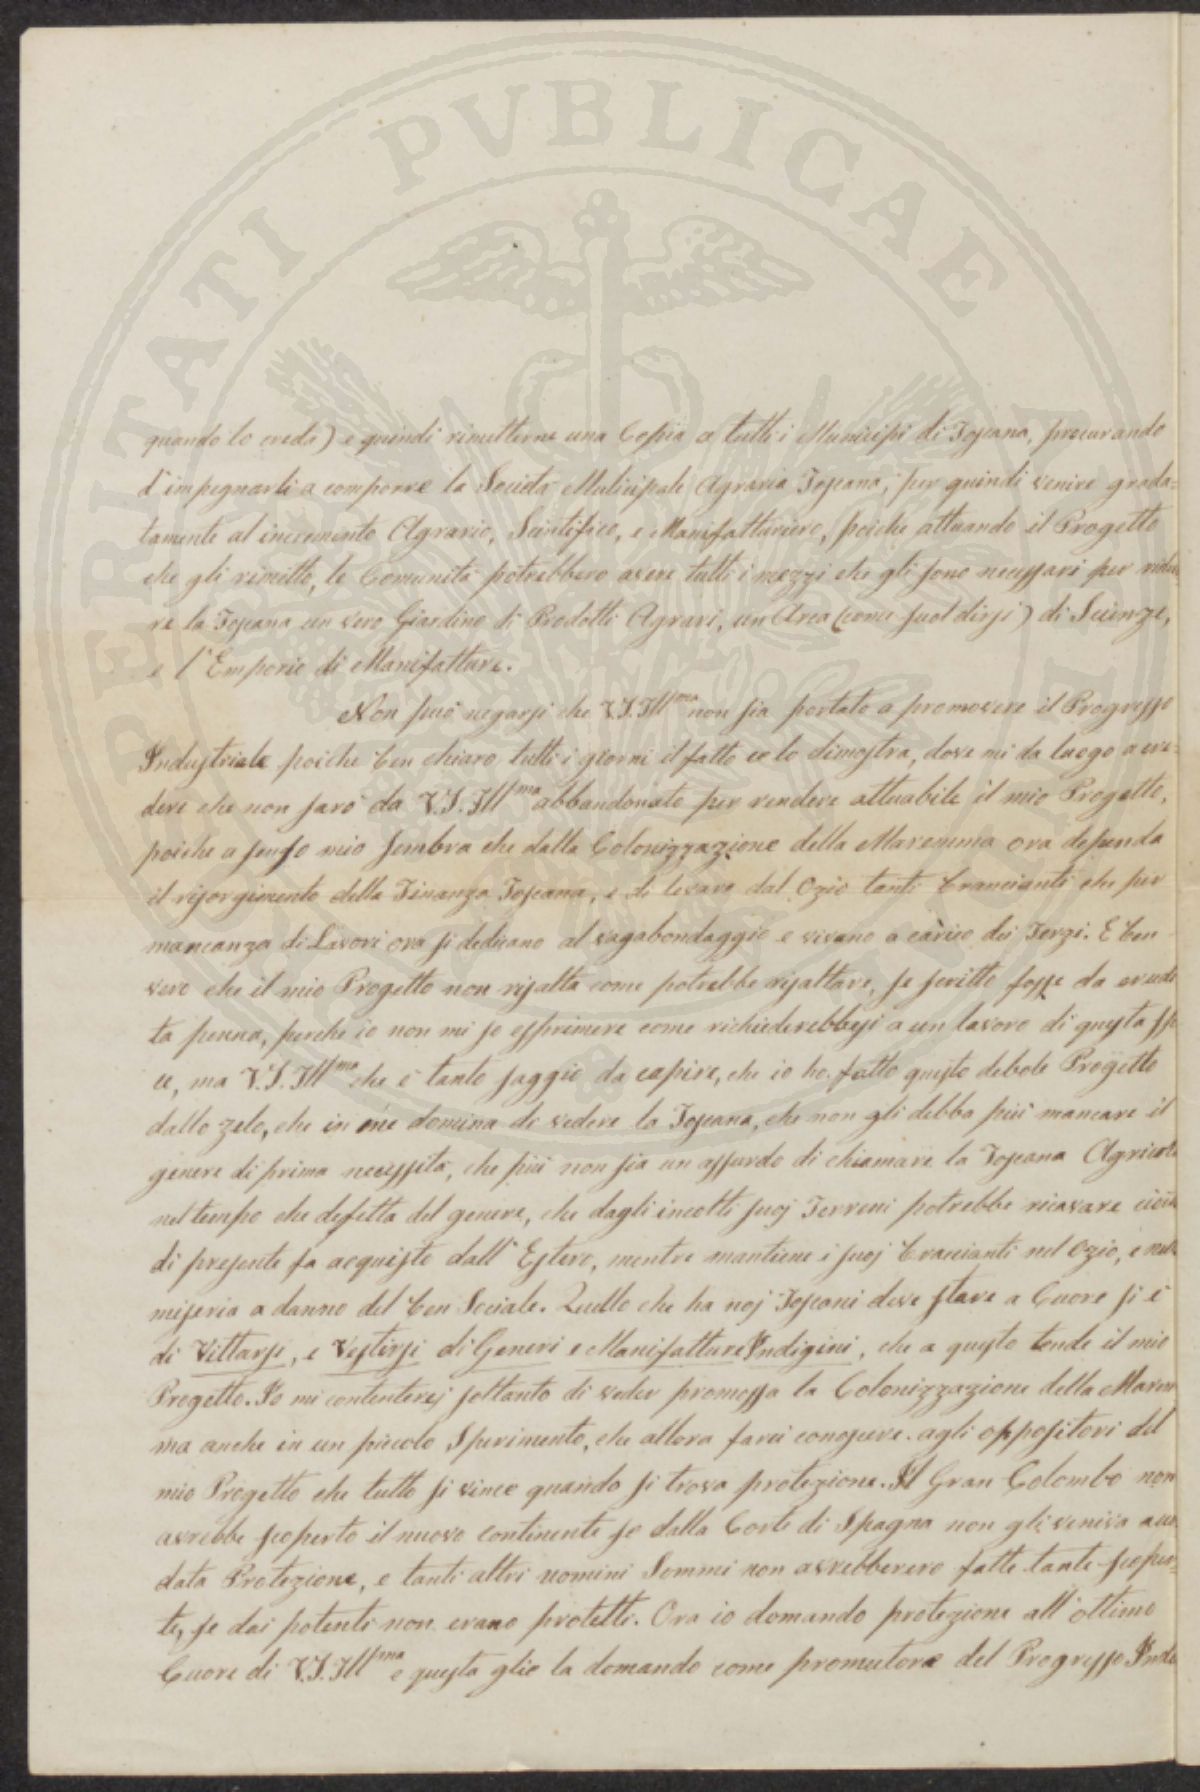 PROSPERITATI PUBLICAE
quando lo crede) e quindi rimetterne una Copia a tutti i Municipi di Toscana, procurando
d'impegnarli a comporre la Società Municipale Agraria Toscana, per quindi venire grada=
tamente al incremento Agrario, Scientifico, e Manifatturiero, poiche attuando il Progetto
che gli rimetto, le Comunità potrebbero avere tutti i mezzi che gli sono necessari per ridur
re la Toscana un vero Giardino di Prodotti Agrari, un Area (come suol dirsi) di Scienze,
e l'Emporio di Manifatture.
Non può negarsi che V.S. Ill.ma non sia portato a promovere il Progresso
Industriale poiche ben chiaro tutti i giorni il fatto ce lo dimostra, dove mi da luogo a cre=
dere che non sarò da V.S. Ill.ma abbandonato per rendere attuabile il mio Progetto,
poiche a senso mio sembra che dalla Colonizzazione della Maremma ora dependa
il risorgimento della Finanza Toscana, e di levare dal Ozio tanti Braccianti che per
mancanza di Lavori ora si dedicano al vagabondaggio e vivano a càrico dei Terzi. E ben
vero che il mio Progetto non risalta come potrebbe risaltare, se scritto fosse da erudi
ta penna, perche io non mi so esprimere come richiederebbesi a un lavoro di questa spe
ce, ma V.S. Ill.ma che è tanto saggio da capire, che io ho fatto questo debole Progetto
dallo zelo, che in me domina di vedere la Toscana, che non gli debba più mancare il
genere di prima necessità, che più non sia un assurdo di chiamare la Toscana Agricola
nel tempo che defetta del genere, che dagli incolti suoj Terreni potrebbe ricavare ciò che
di presente fa acquisto dall'Estero, mentre mantiene i suoj Braccianti nel Ozio, e nella
miseria a danno del ben Sociale. Quello che ha noj Toscani deve stare a Cuore si è
di Vittarsi, e Vestirsi di Generi e Manifatture Indigini, che a questo tende il mio
Progetto. Io mi contenterej soltanto di veder promossa la Colonizzazione della Marem
ma anche in un piccolo Sperimento, che allora farei conoscere agli oppositori del
mio Progetto che tutto si vince quando si trova protezione. Il Gran Colombo non
avrebbe scoperto il nuovo continente se dalla Corte di Spagna non gli veniva accor
data Protezione, e tanti altri uomini Sommi non avrebberero fatte tante scoper=
te, se dai potenti non erano protetti. Ora io domando protezione all'ottimo
Cuore di V.S. Ill.ma e questa glie la domando come promutore del Progresso Indu